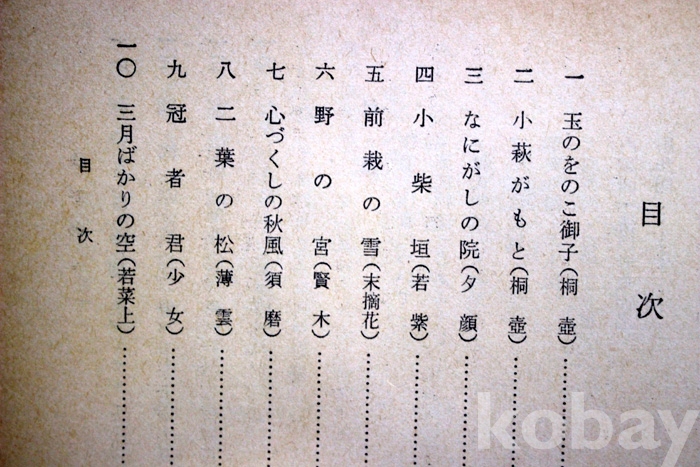 目次
一 玉のをのこ御子(桐壺)
二 小萩がもと(桐壺)
三 なにがしの院(夕顔)
四 小柴垣(若紫)
五 前栽の雪(末摘花)
六 野の宮(賢木)
七 心づくしの秋風(須磨)
八 二葉の松(薄雲)
九 冠者君(少女)
一〇 三月ばかりの空(若菜上)
目次
kobay